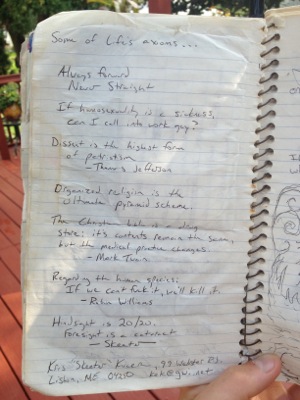 Some of Life's axioms...
Always forward
Never Straight
If homosexuality is a sickness,
can I call into work gay?
Dissent is the highest form
of patriotism
- Thomas Jefferson
Organized religion is the
ultimate pyramid scheme.
The Christian bible is a drug
store; it's contents remain the same,
but the medical practice changes.
- Mark Twain
Regarding the human species:
If we can't fuck it, we'll kill it.
- Robin Williams
Hindsight is 20/20.
foresight is a
- Skeeter
Kris "Skeeter" 99 Webster Rd.
Lisbon, ME 04250